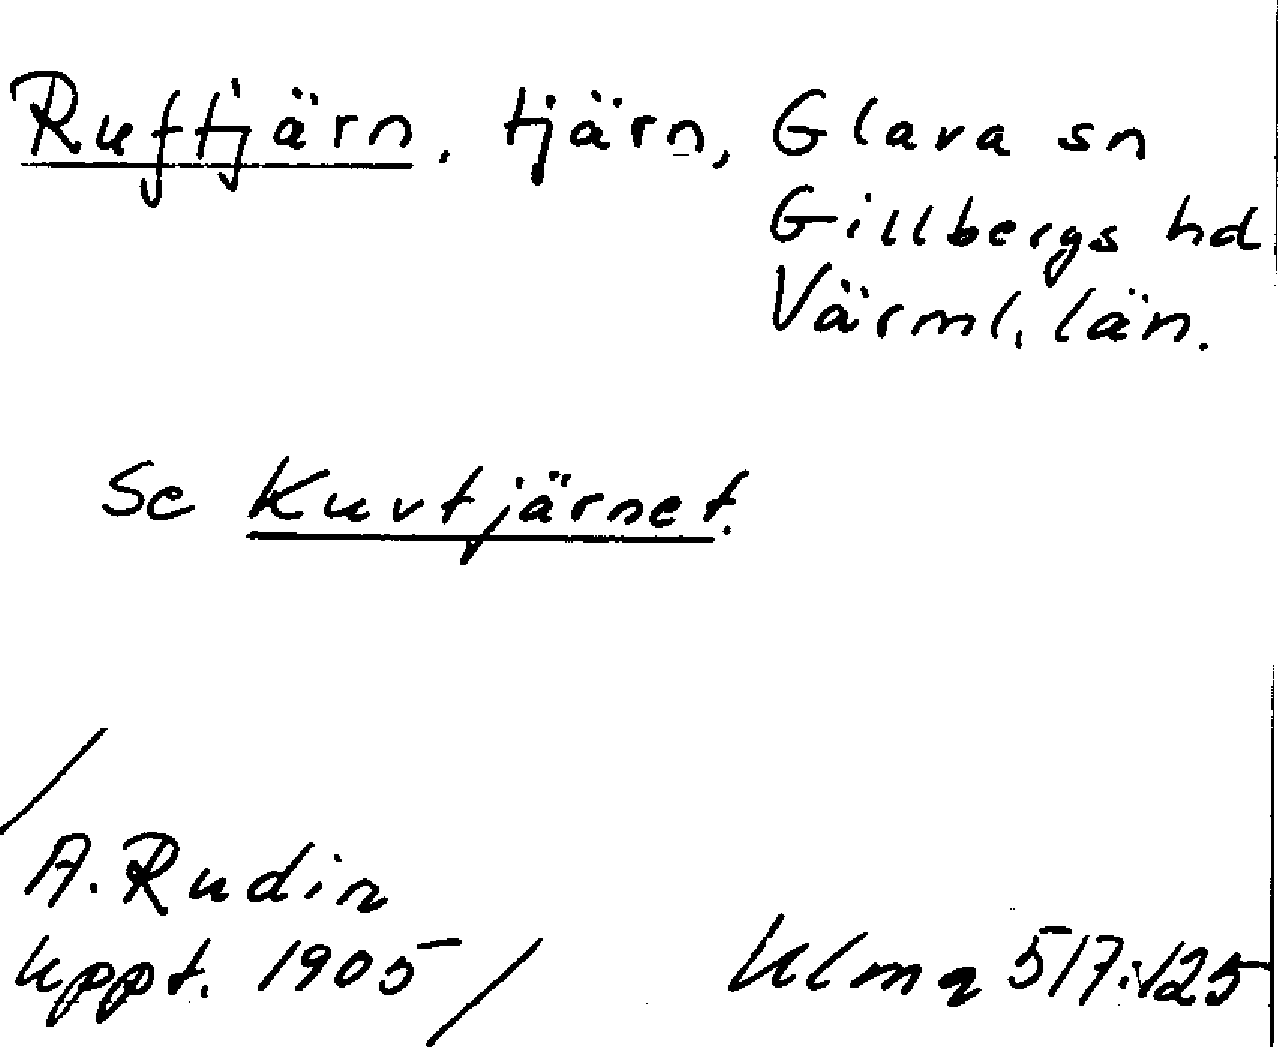 Ruftjärn, tjärn, Glava sn
Gillbergs hd
Värml. län.
Se Kuvtjärnet.
A. Rudin
uppt. 1905
517:125